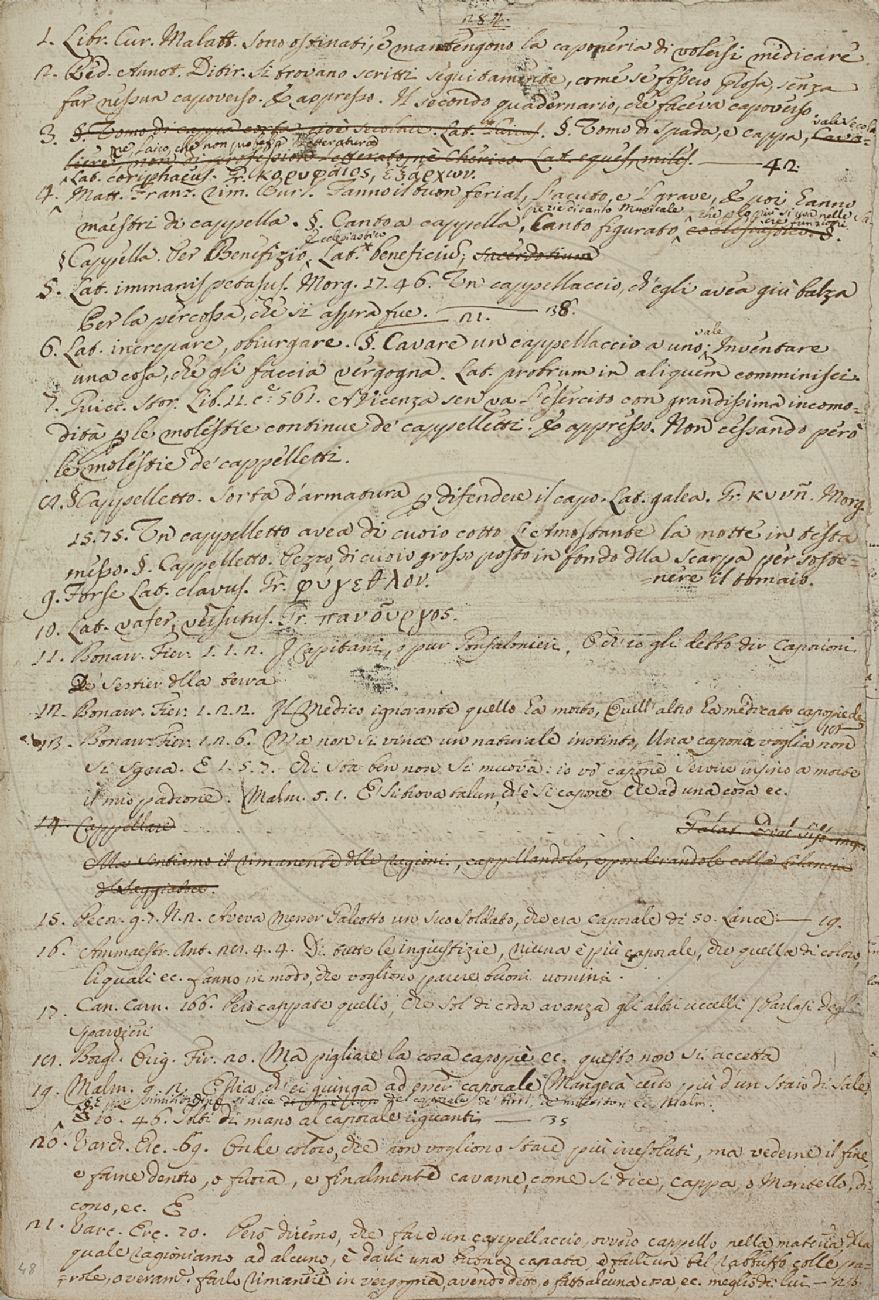 284.
1. Libr. Cur. Malatt. Sono ostinati, e mantengono la caponeria di volersi medicare
2. Red. Annot. Ditir. Si trovano scritti seguitamente, come se fosseio prosa, senza
far nessun capoverso. E appresso. Il secondo quadernario, che faceva capoverso
3. §. Tomo di cappa corta cioè secolare. Lat. §. Tomo di Spada, e cappa, vale Secola
liere, non di professione letterato, ne Cherico. Lat. eques, miles. 42
ne Laico, che non professa letteratura
Lat. coryphaeus. Gr. κορυφαῖος, ἐξάρχων.
4. Matt. Franz. Rim. Burl. Fanno il buon forial, l'acuto, e 'l grave, E poi hanno
maestri di cappella. §. Canto a cappella, Canto figurato ecclesiastico. §.
§ Cappella. Per Benefizio Ecclesiastico Lat. beneficium, sacerdotium
5. Lat. immanis petasus. Morg. 27. 46. Un cappellaccio, ch'egli avea giù balza
Per la percossa, che si aspra fue. 21. 38.
6. Lat. increpare, obiurgare. §. Cavare un cappellaccio a uno; vale Inventare
una cosa, che gli faccia vergogna. Lat. probrum in aliquem comminisci.
7. Guicc. Stor. Lib. 11. c. 561. A Vicenza sen va l'esercito con grandissima incomo-
dità p le molestie continue de' cappelletti. E appresso. Non cessando però
le molestie de' cappelletti.
8. § Cappelletto. Sorta d'armatura p difendere il capo. Lat. galea. Gr. κυνῆ. Morg.
15. 75. Un cappelletto avea di cuoio cotto L'Amostante la notte in testa
messo. §. Cappelletto. Pezzo di cuoio grosso posto in fondo dlla Scarpa per soste-
nere il tomaio.
9. Forse Lat. clavus. Gr. φυγεθλον.
10. Lat. vafer, versutus. Gr. πανοῦργος.
11. Bonarr. Fier. 1. 1. 2. I Capitani, o pur Gonfalonieri, O ch'io gli debbo dir Caporioni
De' Sestier dlla terra
12. Bonarr. Fier. 1. 2. 2. Il Medico ignorante quello ha morto, Quell'altro ha medicato capopiede
13. Bonarr. Fier. 1. 2. 6. Ma non si vince un naturale instinto, Una capona voglia non
si sgara. E 1. 5. 7. Chi sta ben non si muova: io vo' capone Servire insino a morte
il mio padrone. Malm. 5. 1. E si trova talun, ch'è si capone Che ad una cosa ec.
14. Cappellare Galat.
Ma sentiamo il rimanente dlle ragioni, cappellandole, e ponderandole colla bilancia
dl Saggiatore.
15. Pecor. 9. 7. N. 2. Aveva Messer Galeotto un suo Soldato, che era caporale di 50. Lance 19.
16. Ammaestr. Ant. 28. 4. 4. Di tutte le ingiustizie, niuna è più caporale, che quella di coloro,
li quali ec. fanno in modo, che vogliono parere buoni uomini.
17. Can. Carn. 166. Però cappate quello, che sol di coda avanza gli altri uccelli (Parlasi degli
Sparvieri
18. Borg. Orig. Fir. 20. Ma pigliare la cosa capopiè ec. questo non si accetta
19. Malm. 9. 2. E s'ha ch'ei giunga ad esser caporale Mangerà certo più d'un staio di Sale
§ E per similitudine si dice del caporale de' birri, de' mietitori ec. Malm.
§ 10. 46. Tolti di mano al caporale i giganti 35
20. Varch. Erc. 69. Onde coloro, che non vogliono stare più irresoluti, ma vederne il fine
e farne dentro, o fuora, e finalmente cavarne, come si dice, cappa, o Mantello, di
cono, ec. E
21. Varc. Erc. 70. Però diremo, che fare un cappellaccio, ovvero cappello nella materia dlla
quale ragioniamo ad alcuno, è darli una buona canata, e fargli un bel rabbuffo colle pa-
role, o veram. farlo rimanere in vergogna, avendo detto, o fatto alcuna cosa ec. meglio di lui
48